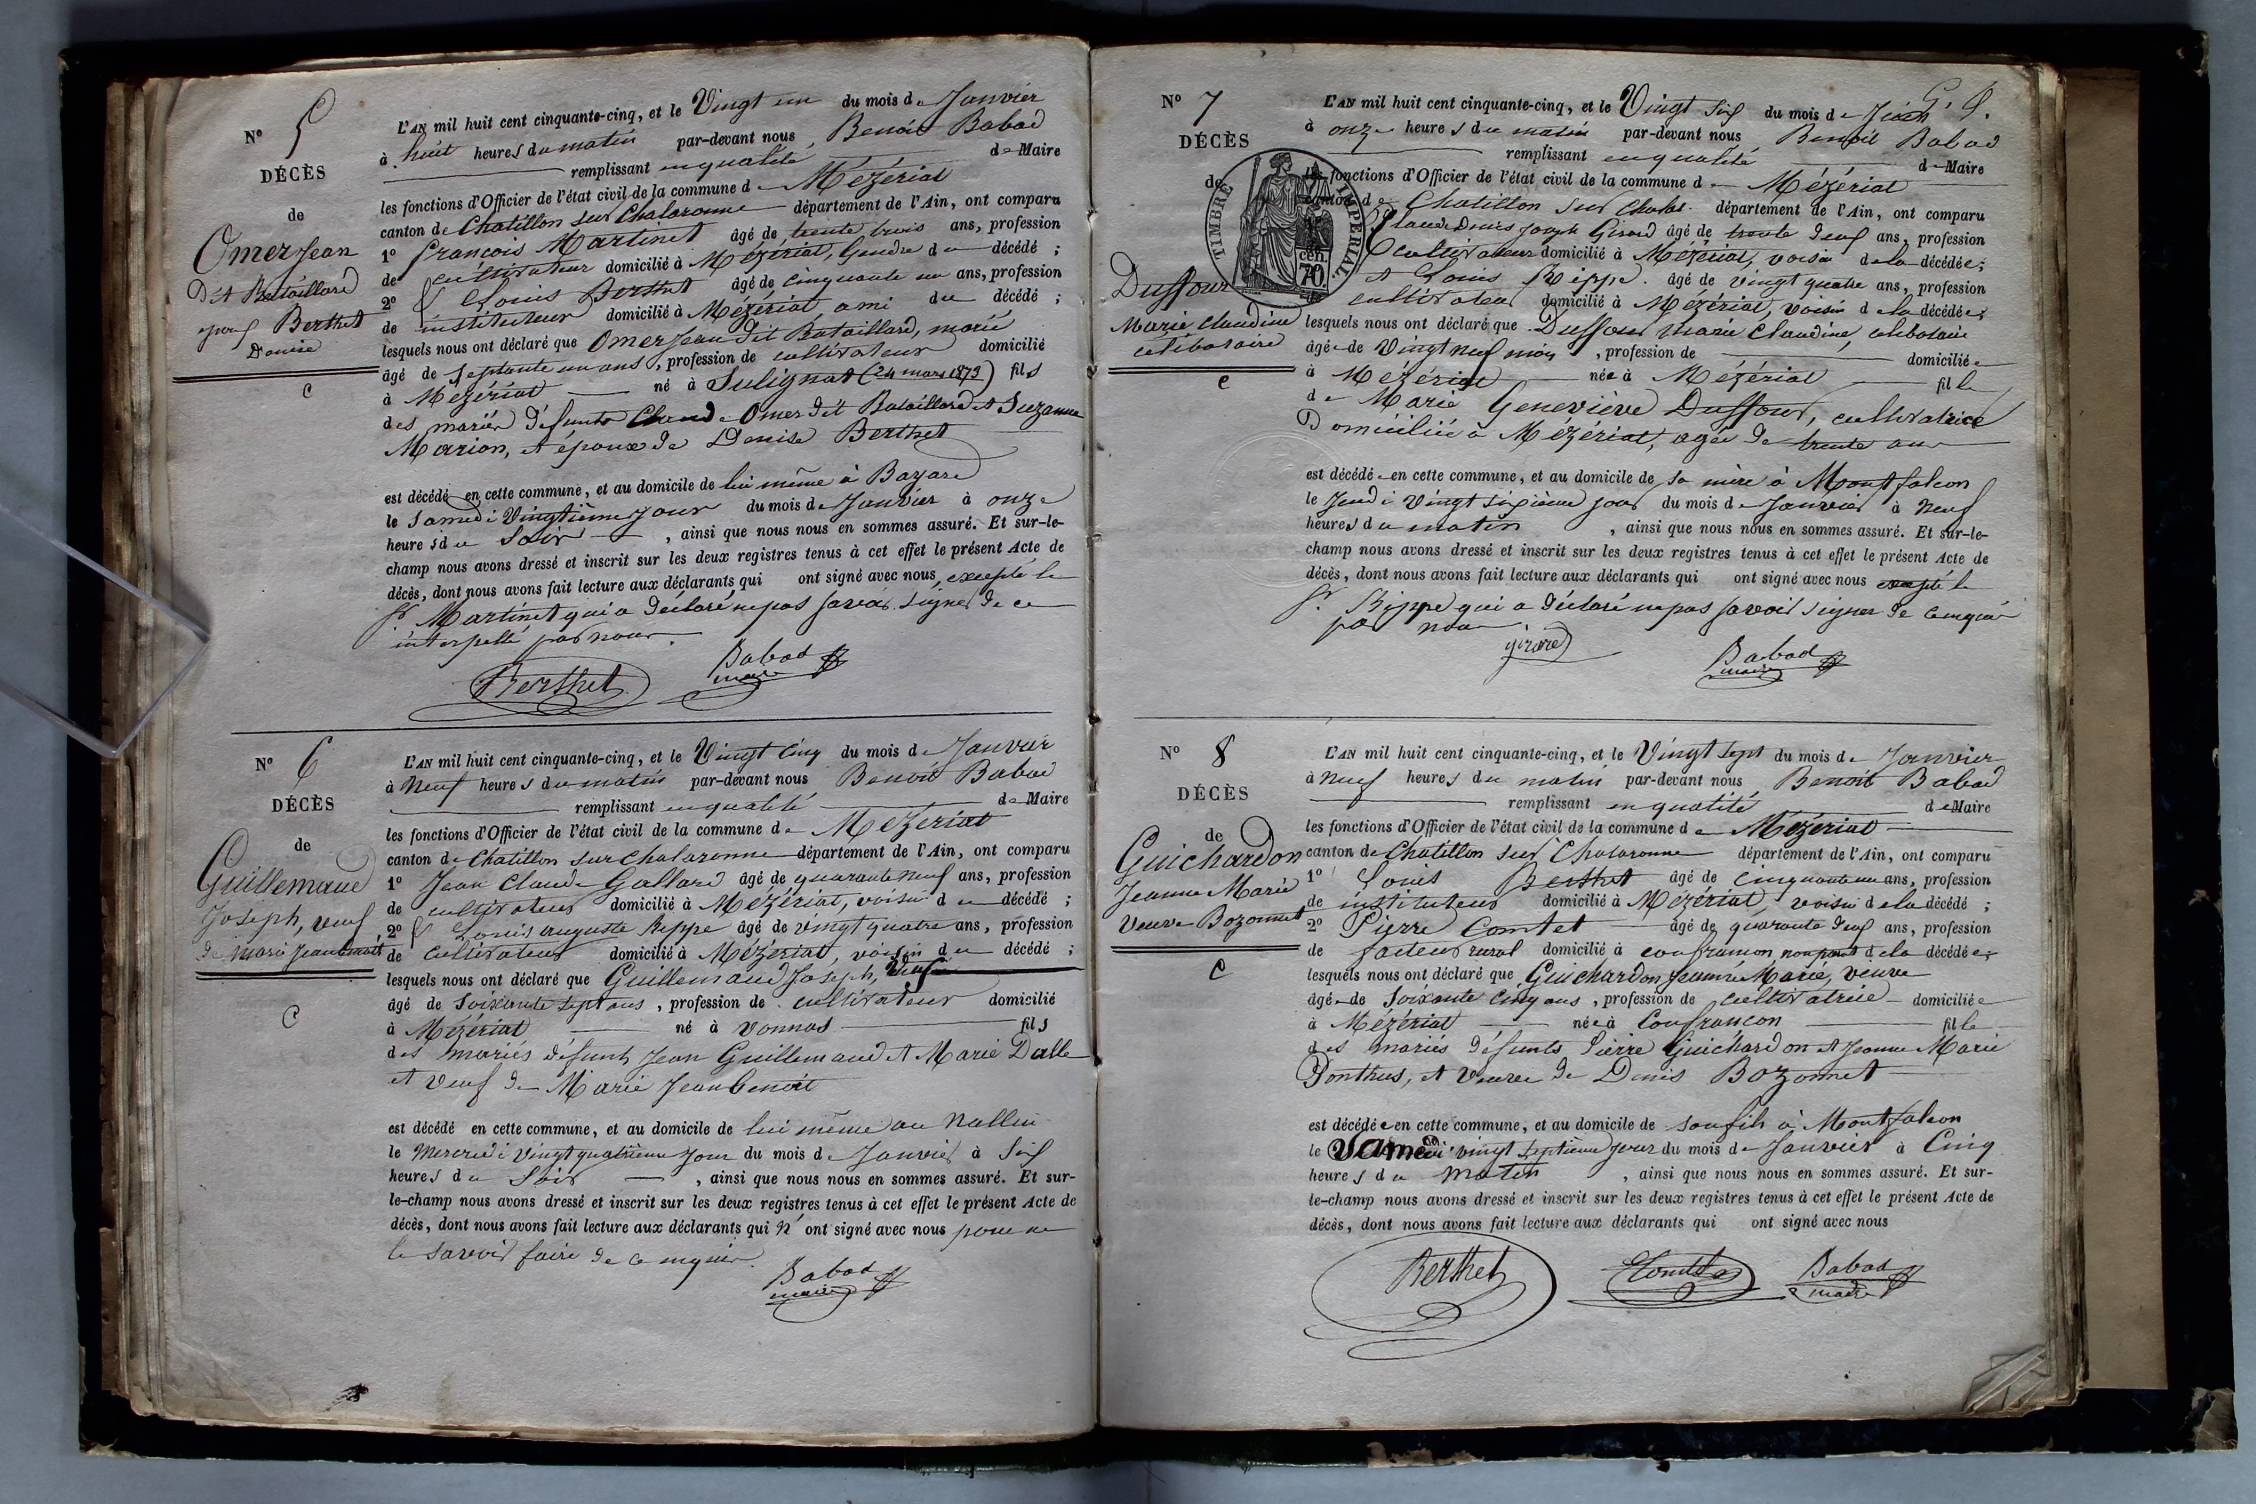 Nº 5
DÉCÈS
de
Omer Jean
Dit Bataillard
époux Berthet
Denise
C
L'AN mil huit cent cinquante-cinq, et le Vingt un du mois de Janvier
à huit heures du matin par-devant nous Benoit Babad
remplissant en qualité de Maire
les fonctions d'Officier de l'état civil de la commune de Mézériat
canton de Chatillon sur Chalaronne département de l'Ain, ont comparu
1º François Martinet âgé de trente trois ans, profession
de cultivateur domicilié à Mézériat, Gendre du décédé ;
2º Louis Berthet âgé de cinquante un ans, profession
de instituteur domicilié à Mézériat, ami du décédé ;
lesquels nous ont déclaré que Omer Jean dit Bataillard, marié
âgé de septante un ans, profession de cultivateur domicilié
à Mézériat né à Sulignat (24 mars 1873) fils
des mariés défunts Claude Omer dit Bataillard et Suzanne
Marion, et époux de Denise Berthet
est décédé en cette commune, et au domicile de lui même à Bayard
le samedi Vingtième jour du mois de Janvier à onze
heures du Soir, ainsi que nous nous en sommes assuré. Et sur-le-
champ nous avons dressé et inscrit sur les deux registres tenus à cet effet le présent Acte de
décès, dont nous avons fait lecture aux déclarants qui ont signé avec nous, excepté le
Sr. Martinet qui a déclaré ne pas savoir signer de ce
interpellé par nous.
Berthet Babad
maire
Nº 6
DÉCÈS
de
Guillemaud
Joseph, veuf
de Marie Jeanbenoit
C
L'AN mil huit cent cinquante-cinq, et le Vingt cinq du mois de Janvier
à Neuf heures du matin par-devant nous Benoit Babad
remplissant en qualité de Maire
les fonctions d'Officier de l'état civil de la commune de Mézériat
canton de Chatillon sur Chalaronne département de l'Ain, ont comparu
1º Jean Claude Gallard âgé de quarante neuf ans, profession
de cultivateur domicilié à Mézériat, voisin du décédé ;
2º Louis auguste Rippe âgé de vingt quatre ans, profession
de cultivateur domicilié à Mézériat, voisin du décédé ;
lesquels nous ont déclaré que Guillemaud Joseph, veuf
âgé de soixante sept ans, profession de cultivateur domicilié
à Mézériat né à Vonnas fils
des mariés défunts Jean Guillemaud et Marie Dalle
et veuf de Marie Jeanbenoit
est décédé en cette commune, et au domicile de lui même au Nallin
le Mercredi vingt quatrième jour du mois de Janvier à Six
heures du Soir, ainsi que nous nous en sommes assuré. Et sur-
le-champ nous avons dressé et inscrit sur les deux registres tenus à cet effet le présent Acte de
décès, dont nous avons fait lecture aux déclarants qui n' ont signé avec nous pour ne
le savoir faire de ce enquis.
Babad
maire
Nº 7
DÉCÈS
de
Duffour
Marie Claudine
célibataire
C
TIMBRE IMPÉRIAL
70 cen.
L'AN mil huit cent cinquante-cinq, et le Vingt Six du mois de
à onze heures du matin par-devant nous Benoit Babad
remplissant en qualité de Maire
les fonctions d'Officier de l'état civil de la commune de Mézériat
canton de Chatillon sur Chalar. département de l'Ain, ont comparu
Claude Denis Joseph Girard âgé de trente deux ans, profession
cultivateur domicilié à Mézériat, voisin de la décédée ;
et Louis Rippe. âgé de vingt quatre ans, profession
cultivateur domicilié à Mézériat, voisin de la décédée
lesquels nous ont déclaré que Duffour Marie Claudine, célibataire
âgée de Vingt neuf mois, profession de domiciliée
à Mézériat née à Mézériat fille
de Marie Geneviève Duffour, cultivatrice
Domiciliée à Mézériat, agée de trente ans
est décédée en cette commune, et au domicile de sa mère à Montfalcon
le Jeudi vingt sixième jour du mois de Janvier à Neuf
heures du matin, ainsi que nous nous en sommes assuré. Et sur-le-
champ nous avons dressé et inscrit sur les deux registres tenus à cet effet le présent Acte de
décès, dont nous avons fait lecture aux déclarants qui ont signé avec nous excepté le
Sr. Rippe qui a déclaré ne pas savoir signer de ce enquis
par nous
girard Babad
maire
Nº 8
DÉCÈS
de
Guichardon
Jeanne Marie
Veuve Bozonnet
C
L'AN mil huit cent cinquante-cinq, et le Vingt Sept du mois de Janvier
à neuf heures du matin par-devant nous Benoit Babad
remplissant en qualité de Maire
les fonctions d'Officier de l'état civil de la commune de Mézériat
canton de Chatillon sur Chalaronne département de l'Ain, ont comparu
1º Louis Berthet âgé de cinquante un ans, profession
de instituteur domicilié à Mézériat, voisin de la décédée ;
2º Pierre Comtet âgé de quarante deux ans, profession
de facteur rural domicilié à confrançon non parent de la décédée
lesquels nous ont déclaré que Guichardon Jeanne Marie, veuve
âgée de soixante cinq ans, profession de cultivatrice domiciliée
à Mézériat née à Confrançon fille
des mariés défunts Pierre Guichardon et Jeanne Marie
Ponthus, et Veuve de Denis Bozonnet
est décédée en cette commune, et au domicile de son fils à Montfalcon
le Samedi vingt septième jour du mois de Janvier à Cinq
heures du matin, ainsi que nous nous en sommes assuré. Et sur-
le-champ nous avons dressé et inscrit sur les deux registres tenus à cet effet le présent Acte de
décès, dont nous avons fait lecture aux déclarants qui ont signé avec nous
Berthet Comtet Babad
maire